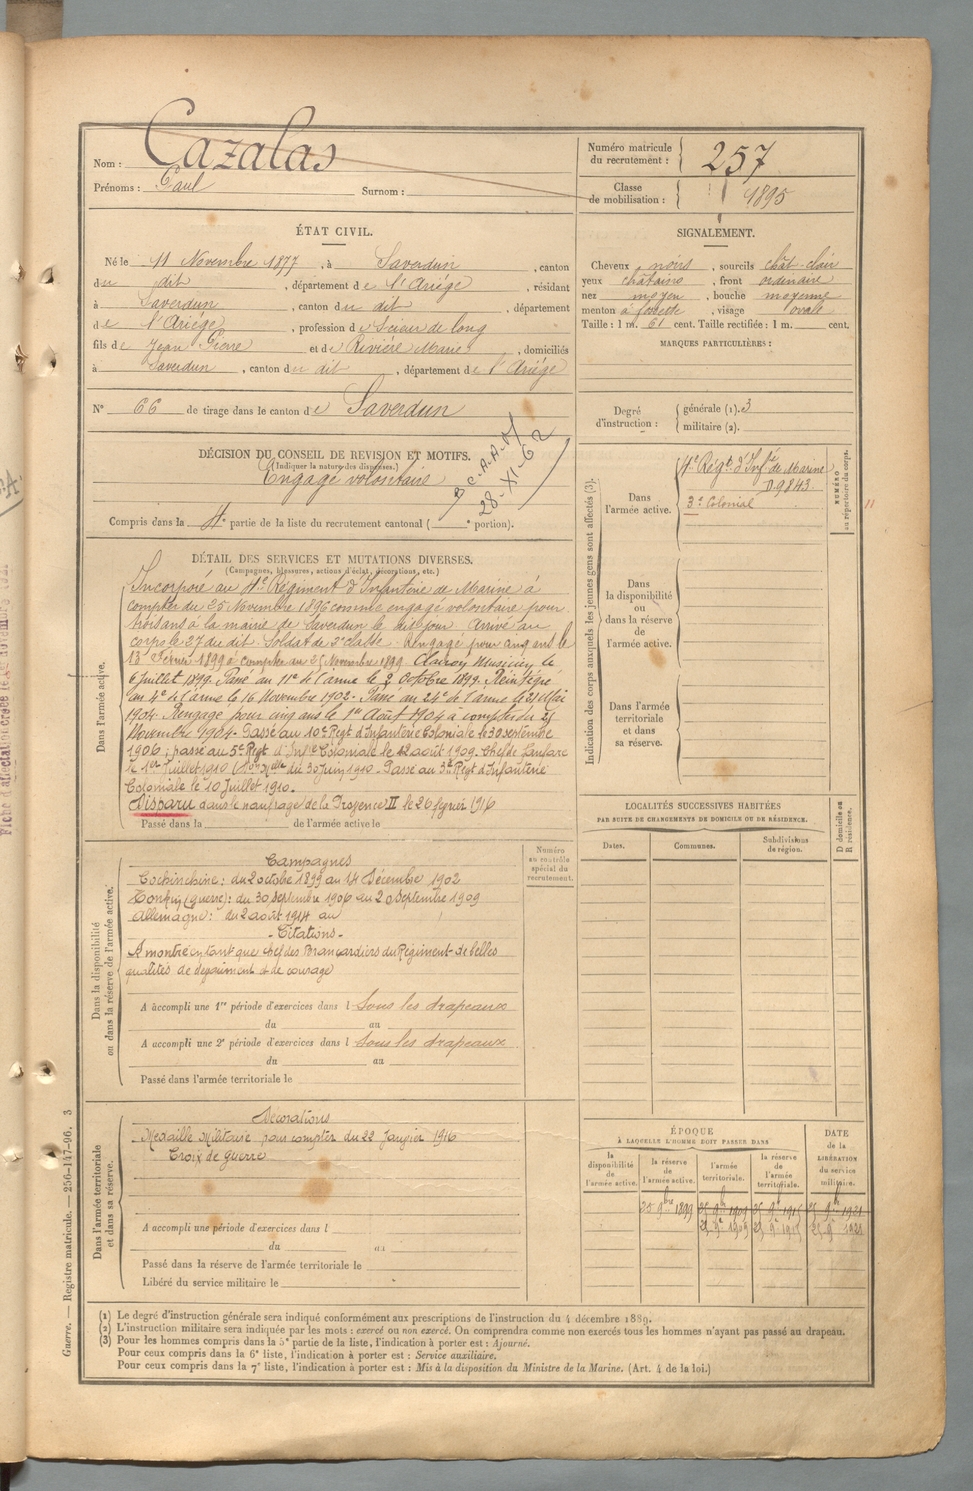 Nom : Cazalas
Prénoms : Paul Surnom :
Numéro matricule du recrutement : 257
Classe de mobilisation : 1895
ÉTAT CIVIL.
Né le 11 Novembre 1877, à Saverdun, canton
du dit, département de l'Ariége, résidant
à Saverdun, canton du dit, département
de l'Ariége, profession de Scieur de long
fils de Jean Pierre et de Rivière Marie, domiciliés
à Saverdun, canton du dit, département de l'Ariége
N° 66 de tirage dans le canton de Saverdun
SIGNALEMENT.
Cheveux noirs, sourcils chât-clair
yeux châtains, front ordinaire
nez moyen, bouche moyenne
menton à fossette, visage ovale
Taille : 1 m. 61 cent. Taille rectifiée : 1 m. cent.
MARQUES PARTICULIÈRES :
Degré d'instruction : générale (1). 3
militaire (2).
DÉCISION DU CONSEIL DE REVISION ET MOTIFS.
(Indiquer la nature des dispenses.)
Engagé volontaire
28-XI-62
Compris dans la 4e partie de la liste du recrutement cantonal ( e portion).
Indication des corps auxquels les jeunes gens sont affectés (3).
NUMÉRO au répertoire du corps.
Dans l'armée active.
4e Régt d'Infie de Marine
D9843
3e Colonial
11
Dans la disponibilité ou dans la réserve de l'armée active.
Dans l'armée territoriale et dans sa réserve.
DÉTAIL DES SERVICES ET MUTATIONS DIVERSES.
(Campagnes, blessures, actions d'éclat, décorations, etc.)
Dans l'armée active.
Incorporé au 4e Régiment d'Infanterie de Marine à
compter du 25 Novembre 1896 comme engagé volontaire pour
trois ans à la mairie de Saverdun le dit jour. Arrivé au
corps le 27 du dit. Soldat de 2e classe. Rengagé pour cinq ans le
13 Février 1899 à compter du 25 Novembre 1899. Clairon Musicien le
6 juillet 1899. Passé au 11e de l'arme le 2 Octobre 1899. Réintégré
au 4e de l'arme le 16 Novembre 1902. Passé au 24e de l'arme le 21 Mai
1904. Rengagé pour cinq ans le 1er Août 1904 à compter du 25
Novembre 1904. Passé au 10e Regt d'Infanterie Coloniale le 30 septembre
1906; passé au 5e Régt d'Infie Coloniale le 12 août 1909. Chef de fanfare
le 1er Juillet 1910 (Don Mlle du 30 Juin 1910. Passé au 3e Regt d'Infanterie
Coloniale le 10 Juillet 1910.
Disparu dans le naufrage de la Provence II le 26 février 1916
Passé dans la de l'armée active le
LOCALITÉS SUCCESSIVES HABITÉES
PAR SUITE DE CHANGEMENTS DE DOMICILE OU DE RÉSIDENCE.
Dates. Communes. Subdivisions de région.
D domicile ou R résidence.
Numéro au contrôle spécial du recrutement.
Dans la disponibilité ou dans la réserve de l'armée active.
Campagnes
Cochinchine: du 2 octobre 1899 au 14 Décembre 1902
Tonkin (guerre): du 30 septembre 1906 au 20 Septembre 1909
Allemagne: du 2 août 1914 au
- Citations -
A montré en tant que chef des Brancardiers du Régiment de belles
qualités de dévouement et de courage
A accompli une 1re période d'exercices dans l Sous les drapeaux
du au
A accompli une 2e période d'exercices dans l Sous les drapeaux
du au
Passé dans l'armée territoriale le
Dans l'armée territoriale et dans sa réserve.
Décorations
Médaille Militaire pour compter du 22 Janvier 1916
Croix de guerre
A accompli une période d'exercices dans l
du au
Passé dans la réserve de l'armée territoriale le
Libéré du service militaire le
ÉPOQUE
À LAQUELLE L'HOMME DOIT PASSER DANS
la disponibilité de l'armée active.
la réserve de l'armée active.
l'armée territoriale.
la réserve de l'armée territoriale.
DATE de la LIBÉRATION du service militaire.
25 9bre 1899
25 9e 1909 25 9e 1915 25 9e 1921
(1) Le degré d'instruction générale sera indiqué conformément aux prescriptions de l'instruction du 4 décembre 1889.
(2) L'instruction militaire sera indiquée par les mots : exercé ou non exercé. On comprendra comme non exercés tous les hommes n'ayant pas passé au drapeau.
(3) Pour les hommes compris dans la 5e partie de la liste, l'indication à porter est : Ajourné.
Pour ceux compris dans la 6e liste, l'indication à porter est : Service auxiliaire.
Pour ceux compris dans la 7e liste, l'indication à porter est : Mis à la disposition du Ministre de la Marine. (Art. 4 de la loi.)
Guerre. — Registre matricule. — 256-147-96. 3